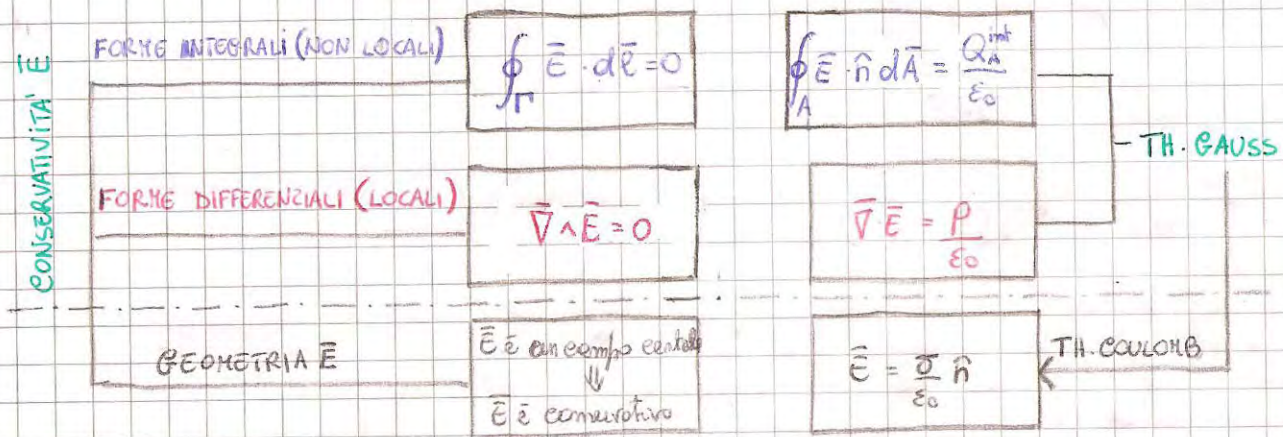 CONSERVATIVITA' Ē
FORME INTEGRALI (NON LOCALI)
∮_Γ Ē · dℓ̄ = 0
∮_A Ē · n̂ dĀ = Q_A^int / ε₀
TH. GAUSS
FORME DIFFERENZIALI (LOCALI)
∇̄ ∧ Ē = 0
∇̄ · Ē = ρ / ε₀
GEOMETRIA Ē
Ē è un campo centrale
⇓
Ē è conservativo
Ē = σ / ε₀ n̂
TH. COULOMB